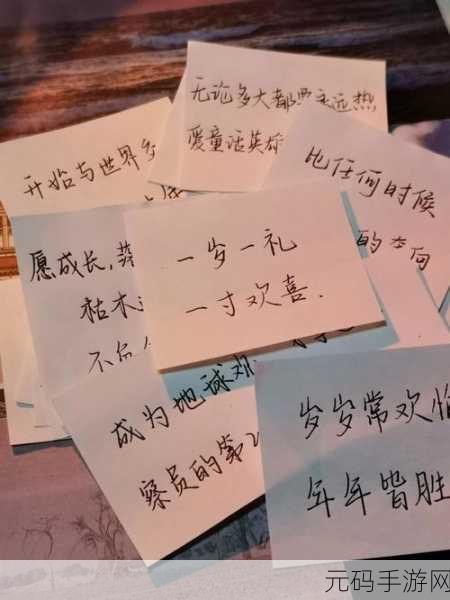 无论多大都要永远热
爱童话英雄
开始与世界
比任何时候
的
愿成长,
枯木
不负
一岁一礼
一寸欢喜.
成为地球观
察员的第
岁岁常欢愉
年年皆胜
元码手游网